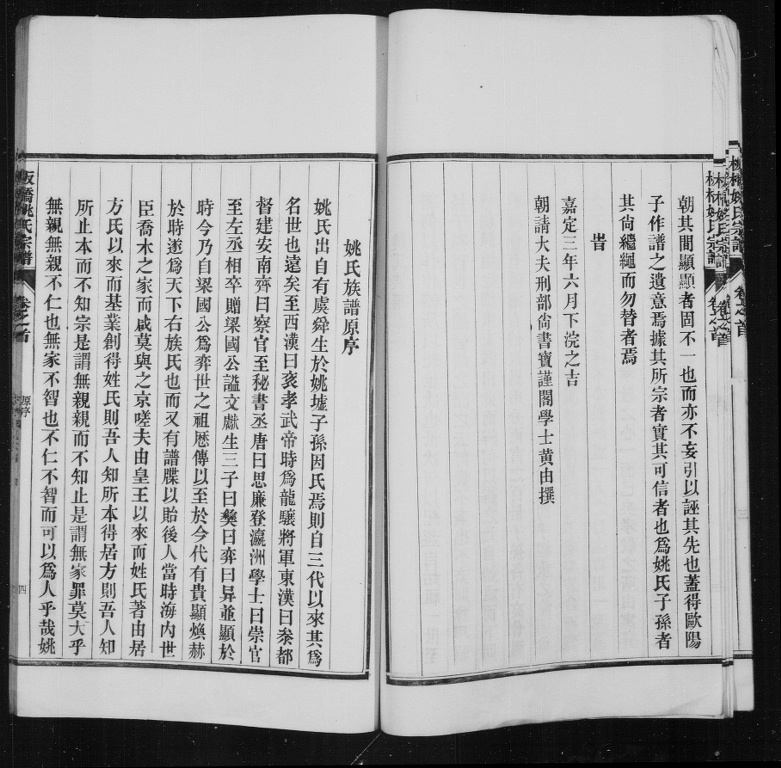 朝其間顯顯者固不一也而亦不妄引以誣其先也蓋得歐陽
子作譜之遺意焉據其所宗者實其可信者也為姚氏子孫者
其尙繼繩而勿替者焉
旹
嘉定三年六月下浣之吉
朝請大夫刑部尙書寶謹閣學士黃由撰
姚氏族譜原序
姚氏出自有虞舜生於姚墟子孫因氏焉則自三代以來其為
名世也遠矣至西漢曰袠孝武帝時為龍驤將軍東漢曰叅都
督建安南齊曰察官至秘書丞唐曰思廉登瀛洲學士曰崇官
至左丞相卒贈梁國公謚文獻生三子曰彝曰弈曰昇並顯於
時今乃自梁國公為弈世之祖歷傳以至於今代有貴顯煥赫
於時遂為天下右族氏也而又有譜牒以貽後人當時海內世
臣喬木之家而戚莫與之京嗟夫由皇王以來而姓氏著由居
方氏以來而基業創得姓氏則吾人知所本得居方則吾人知
所止本而不知宗是謂無親親而不知止是謂無家罪莫大乎
無親無親不仁也無家不智也不仁不智而可以為人乎哉姚
板橋姚氏宗譜
卷之首
原序
四